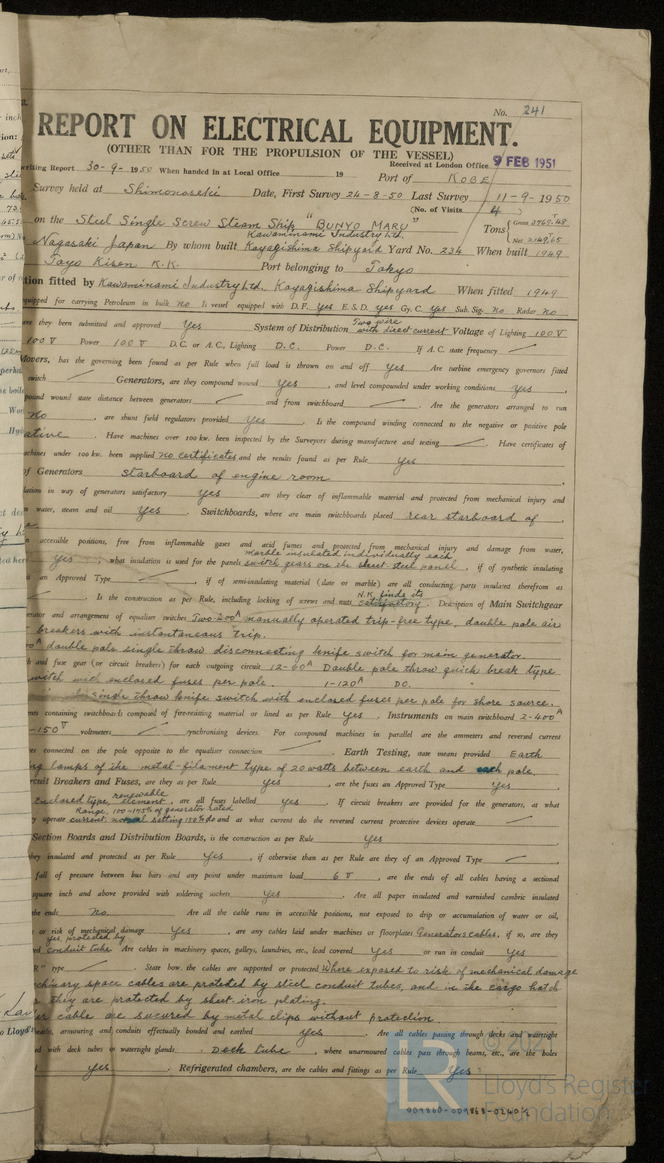 No. 241
REPORT ON ELECTRICAL EQUIPMENT.
(OTHER THAN FOR THE PROPULSION OF THE VESSEL)
Received at London Office 9 FEB 1951
writing Report 30-9-1950 When handed in at Local Office 19 Port of KOBE
Survey held at Shimonoseki Date, First Survey 24-8-50 Last Survey 11-9-1950
(No. of Visits 4 )
on the Steel Single Screw Steam Ship "BUNYO MARU" Tons Gross Net
Kawaminami Industry Ltd.
Nagasaki Japan By whom built Koyagishima Shipyard Yard No. 234 When built 1949
Toyo Kisen K.K. Port belonging to Tokyo
tion fitted by Kawaminami Industry Ltd, Koyagishima Shipyard When fitted 1949
quipped for carrying Petroleum in bulk No Is vessel equipped with D.F. Yes E.S.D. Yes Gy.C. Yes Sub. Sig. No Radar No
Two wire
ere they been submitted and approved Yes System of Distribution with direct current Voltage of Lighting 100 V
100 V Power 100 V D.C. or A.C., Lighting D.C. Power D.C. If A.C. state frequency
Movers, has the governing been found as per Rule when full load is thrown on and off Yes Are turbine emergency governors fitted
switch Generators, are they compound wound Yes, and level compounded under working conditions Yes,
pound wound state distance between generators and from switchboard. Are the generators arranged to run
No, are shunt field regulators provided Yes. Is the compound winding connected to the negative or positive pole
ative. Have machines over 100 kw. been inspected by the Surveyors during manufacture and testing. Have certificates of
achines under 100 kw. been supplied no certificates and the results found as per Rule Yes
of Generators starboard of engine room
lation in way of generators satisfactory Yes are they clear of inflammable material and protected from mechanical injury and
m water, steam and oil Yes. Switchboards, where are main switchboards placed rear starboard of
n accessible positions, free from inflammable gases and acid fumes and protected from mechanical injury and damage from water,
marble insulated individually each
Yes, what insulation is used for the panels switch gears on the sheet steel panel, if of synthetic insulating
an Approved Type, if of semi-insulating material (slate or marble) are all conducting parts insulated therefrom as
N.K. finds its
Is the construction as per Rule, including locking of screws and nuts satisfactory. Description of Main Switchgear
erator and arrangement of equaliser switches Two-200A manually operated trip-free type, double pole air
breakers with instantaneous trip.
double pole single throw disconnecting knife switch for main generator.
h and fuse gear (or circuit breakers) for each outgoing circuit 12-60A Double pole throw quick break type
witch with enclosed fuses per pole. 1-120A DO.
single throw knife switch with enclosed fuses per pole for shore source.
nes containing switchboards composed of fire-resisting material or lined as per Rule Yes. Instruments on main switchboard 2-400A
-150V voltmeters synchronising devices. For compound machines in parallel are the ammeters and reversed current
es connected on the pole opposite to the equaliser connection. Earth Testing, state means provided Earth
ng lamps of the metal-filament type of 20 watts between earth and each pole.
cuit Breakers and Fuses, are they as per Rule Yes, are the fuses an Approved Type Yes,
renewable
enclosed type, element, are all fuses labelled Yes. If circuit breakers are provided for the generators, at what
Range, 110-145% of generator rated
y operate current. normal setting 130% do and at what current do the reversed current protective devices operate
Section Boards and Distribution Boards, is the construction as per Rule Yes
they insulated and protected as per Rule Yes, if otherwise than as per Rule are they of an Approved Type
fall of pressure between bus bars and any point under maximum load 6 V, are the ends of all cables having a sectional
square inch and above provided with soldering sockets Yes. Are all paper insulated and varnished cambric insulated
the ends No. Are all the cable runs in accessible positions, not exposed to drip or accumulation of water or oil,
or risk of mechanical damage Yes, are any cables laid under machines or floorplates Generators cables, if so, are they
Yes, protected by
conduit tube Are cables in machinery spaces, galleys, laundries, etc., lead covered Yes or run in conduit Yes
R" type. State how the cables are supported or protected Where exposed to risk of mechanical damage
chinery space cables are proteted by steel conduit tubes, and in the cargo hatch
they are protected by sheet iron plating.
er cable are sucured by metal clips without protection.
heaths, armouring and conduits effectually bonded and earthed Yes. Are all cables passing through decks and watertight
ed with deck tubes or watertight glands. Deck tube, where unarmoured cables pass through beams, etc., are the holes
Yes. Refrigerated chambers, are the cables and fittings as per Rule Yes.
LR
Lloyd's Register
Foundation
009860-009868-0240 1/2